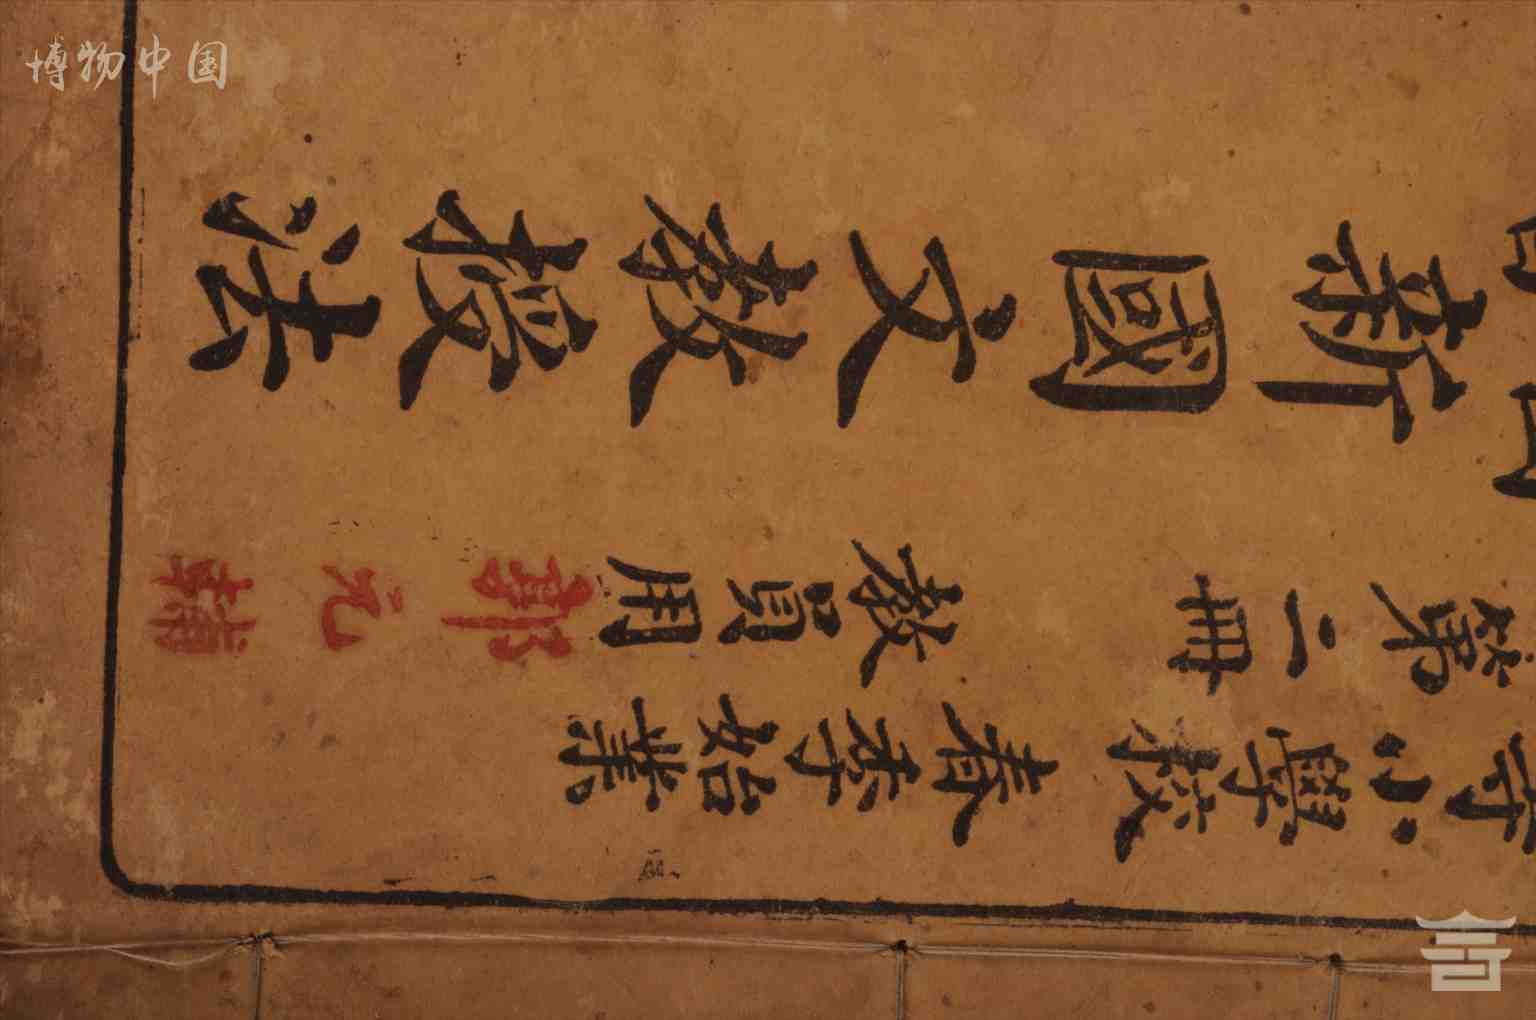 博物中国
小學校春季始業
第二冊 教員用 郭元輔
新國文教授法